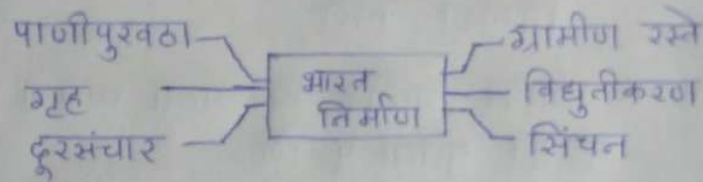 पाणीपुरवठा
गृह
दूरसंचार
भारत
निर्माण
ग्रामीण रस्ते
विद्युतीकरण
सिंचन